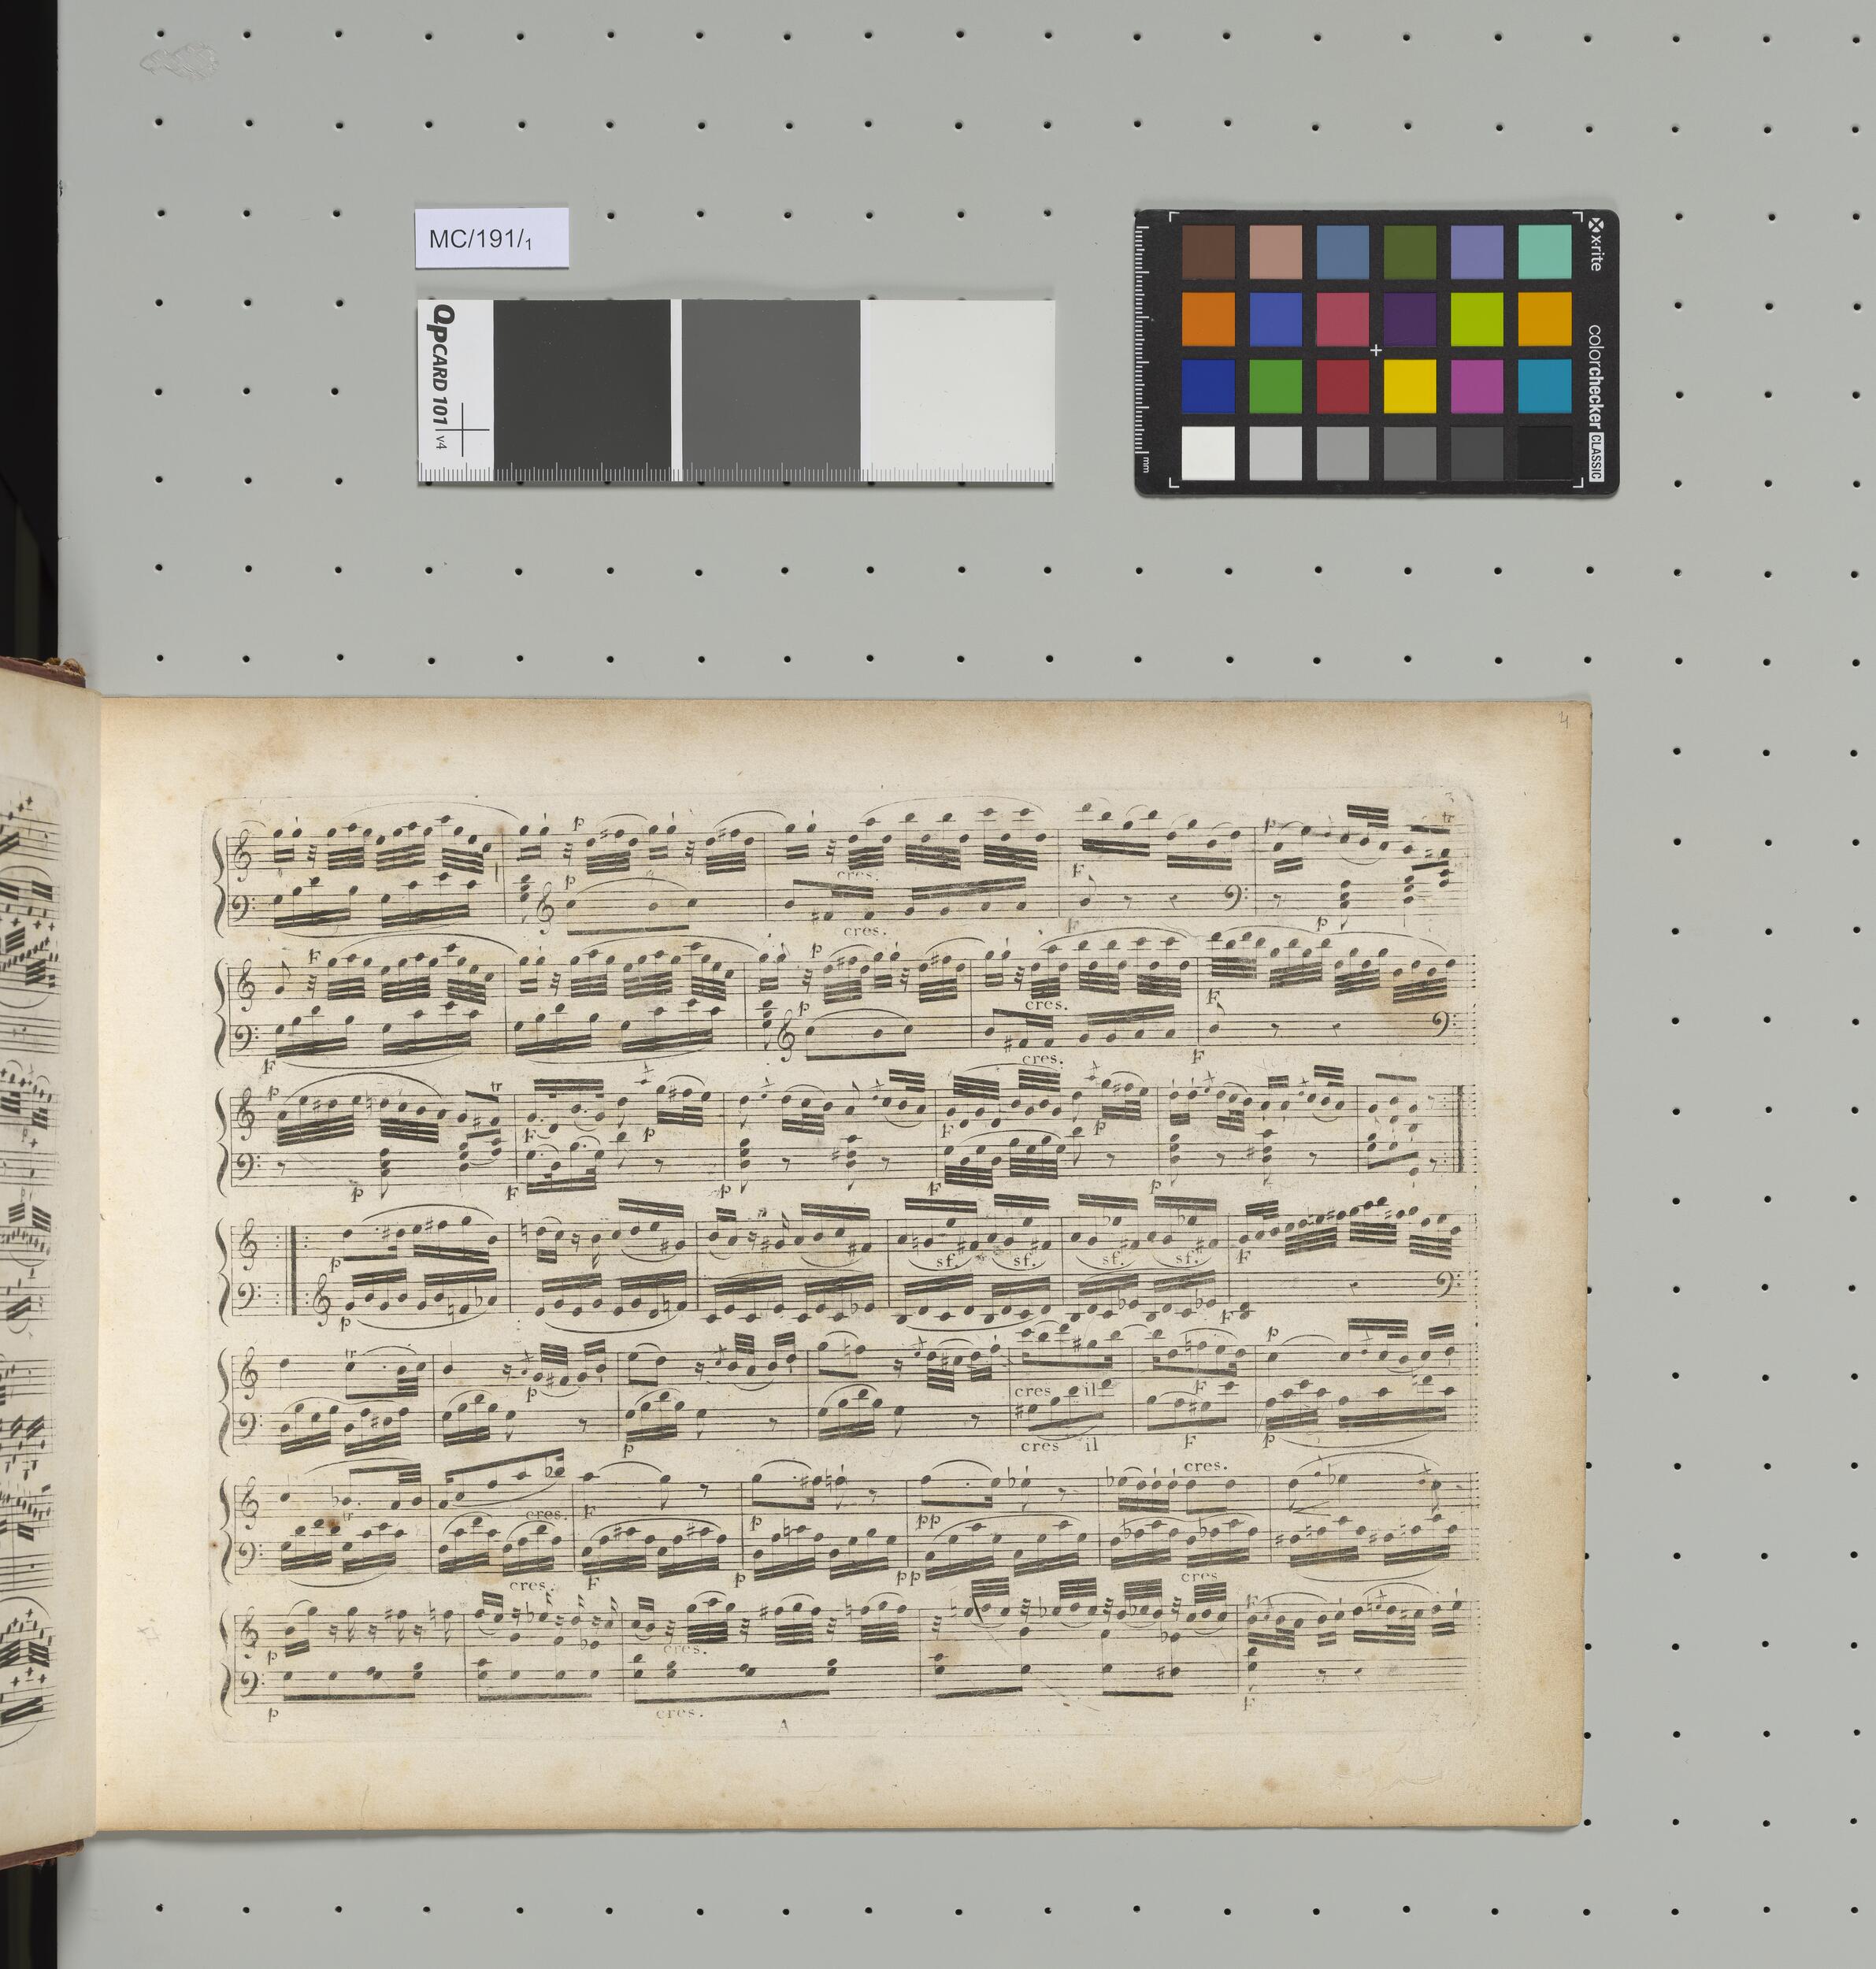 MC/191/1
QPCARD 101 v4
x-rite
colorchecker CLASSIC
mm
4
3
p p tr
p cres. F
cres. F p
F p cres. F
p
F cres. F
p tr
F p F p
p F p F p
sf. sf. sf. sf. F
p
p F
tr p p
cres il F
p cres il F p
cres.
tr cres. F p pp
cres. F p pp cres
p cres. F
p cres. F
A